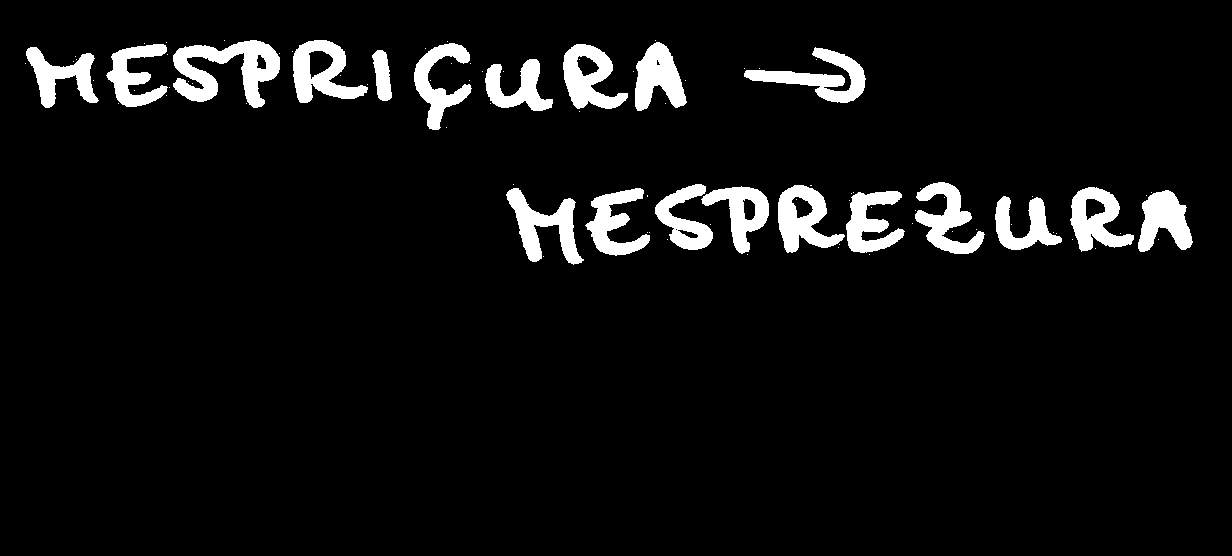 MESPRIÇURA →
MESPREZURA